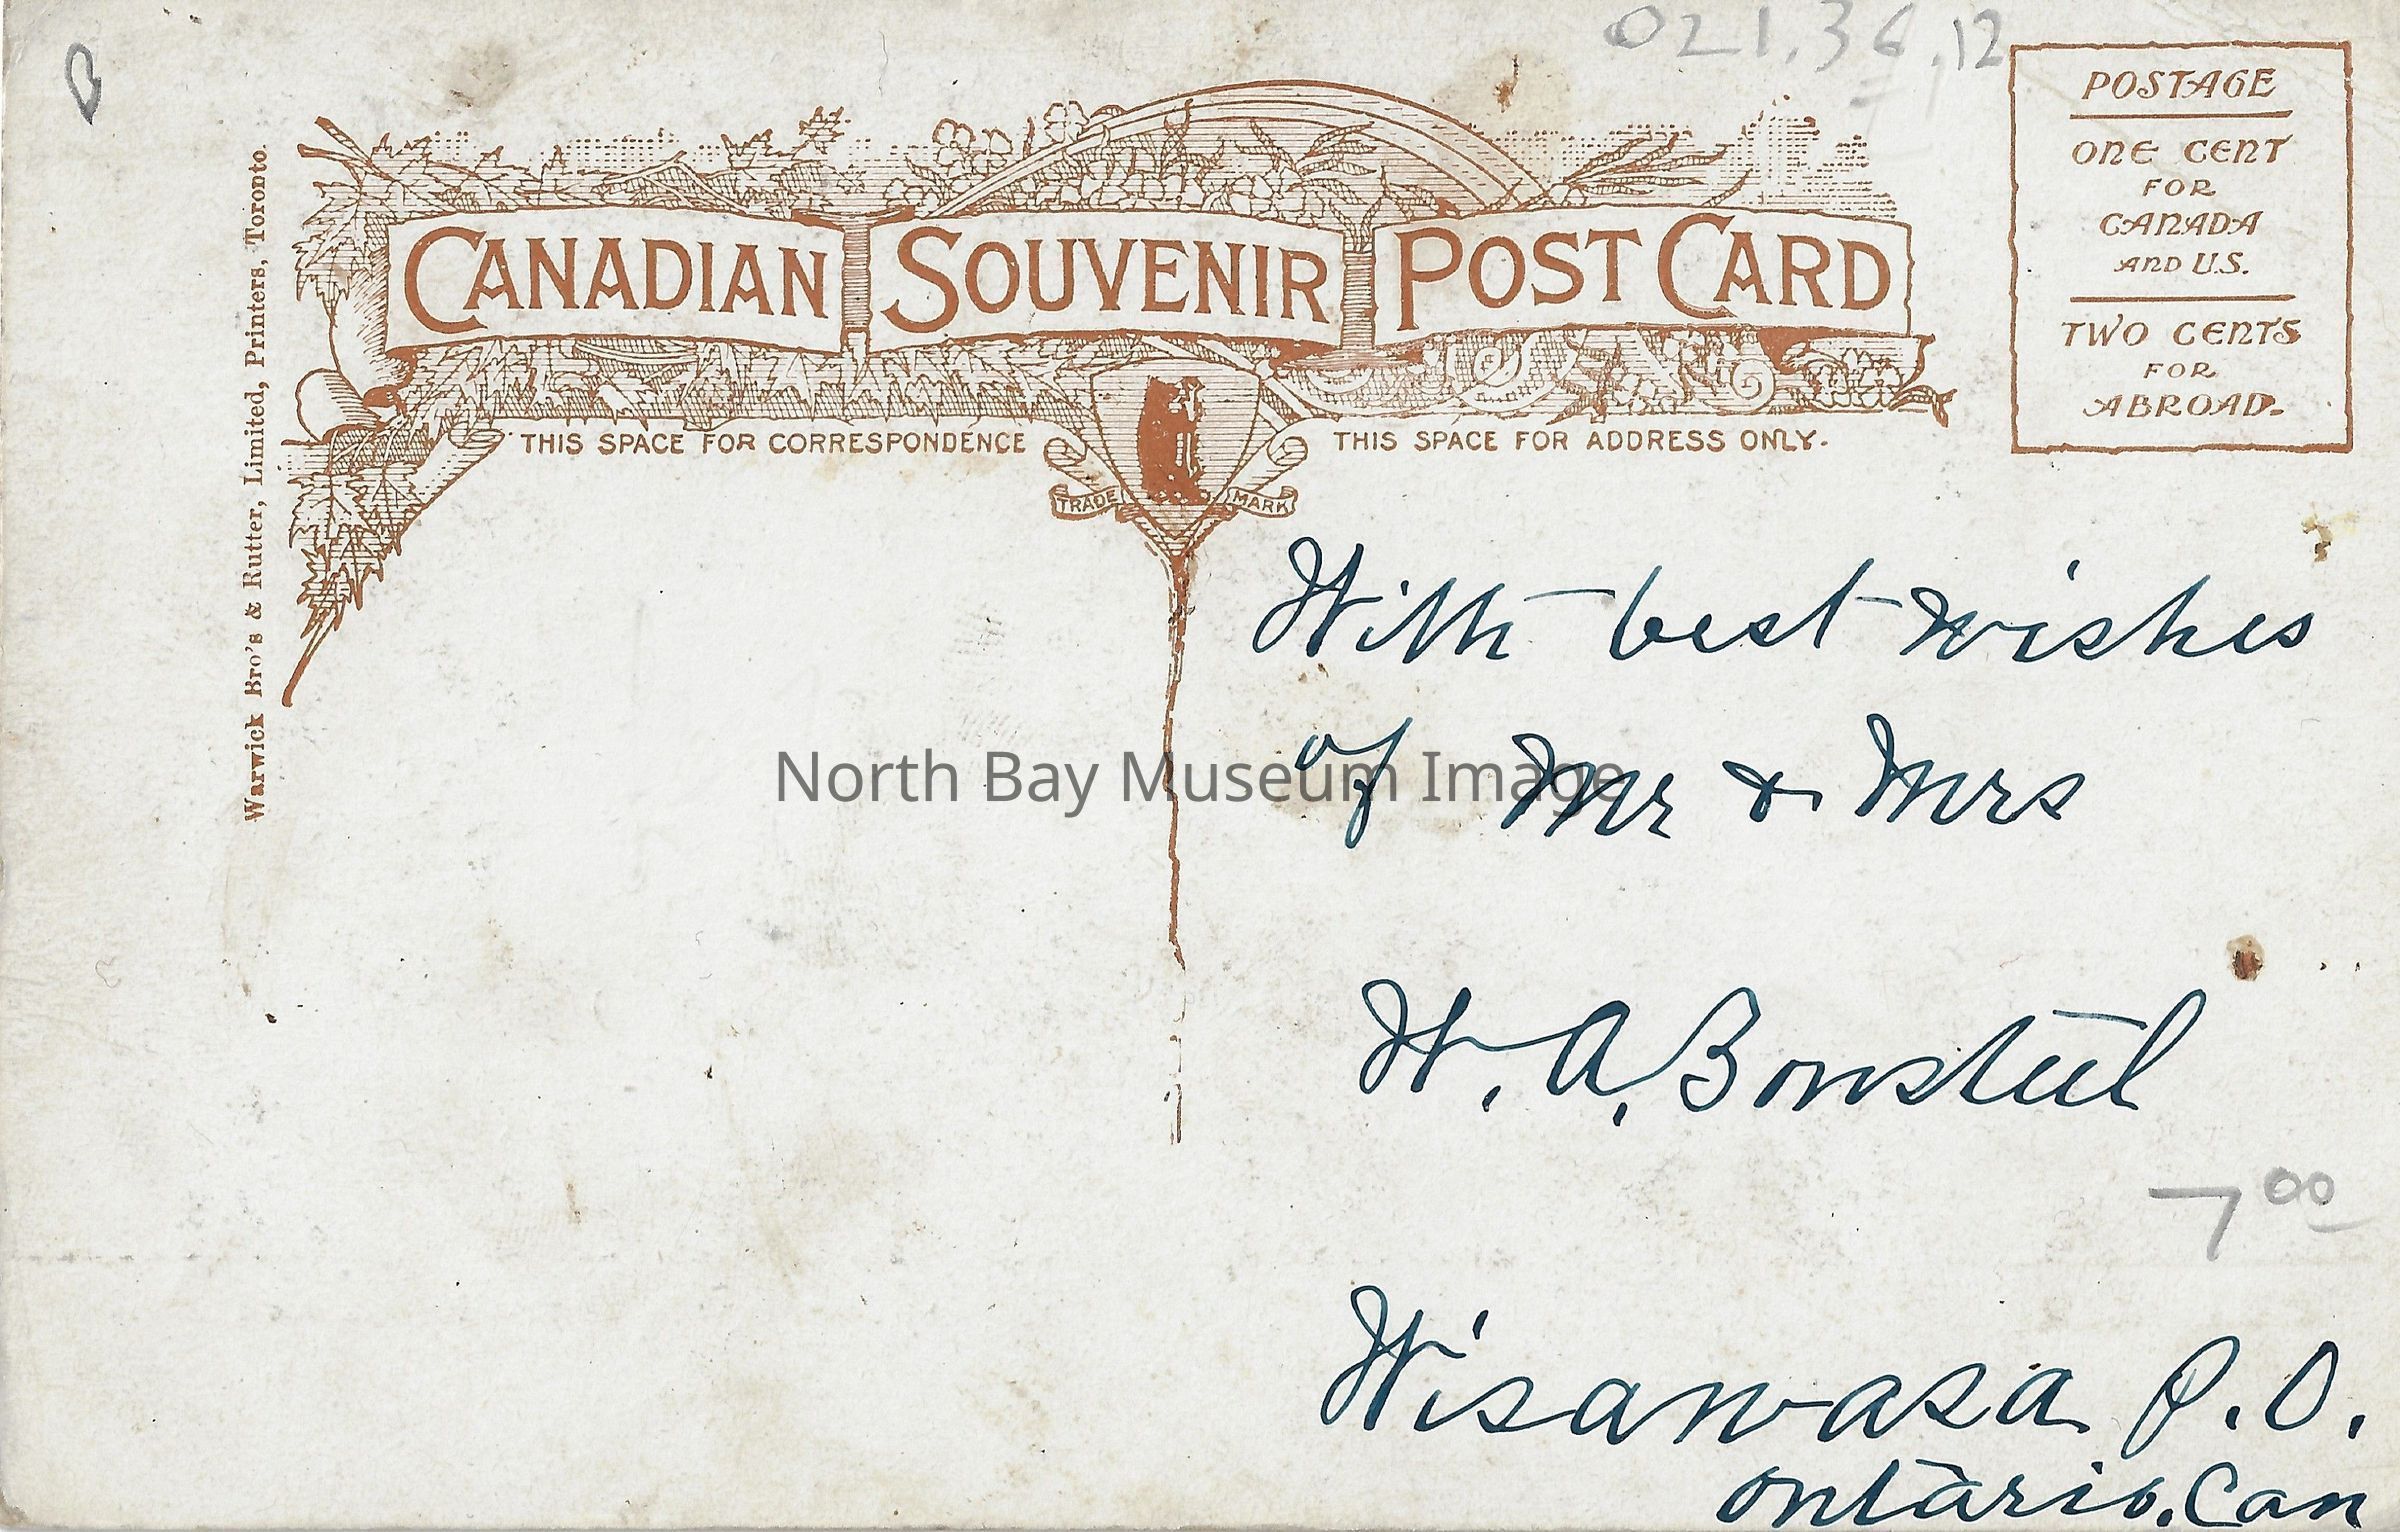 021.36.12
POSTAGE
ONE CENT
FOR
CANADA
AND U.S.
TWO CENTS
FOR
ABROAD.
CANADIAN SOUVENIR POST CARD
THIS SPACE FOR CORRESPONDENCE
THIS SPACE FOR ADDRESS ONLY.
TRADE MARK
Warwick Bro's & Rutter, Limited, Printers, Toronto.
With best wishes
of Mr & Mrs
North Bay Museum Image
W. A. Bonsteel
7 00
Wisawasa P.O.
Ontario. Can